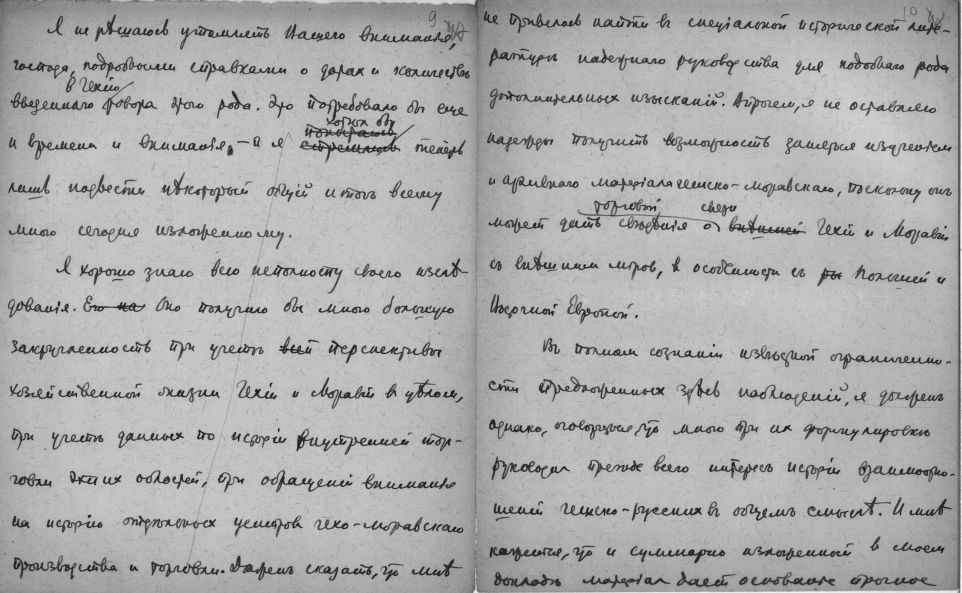 9
Я не рѣшаюсь утомлять Вашего вниманія,
господа, подробными справками о датах и количествѣ
в Чехію
введеннаго товара этого рода. Это потребовало бы еще
хотѣл бы
и времени и вниманія, – а я теперь
лишь подвести нѣкоторый общій итогъ всему
мною сегодня изложенному.
Я хорошо знаю всю неполноту своего изслѣ-
дованія. Его на Оно получило бы много большую
закругленность при учетѣ всей перспективы
хозяйственной жизни Чехіи и Моравіи в цѣлом,
при учетѣ данных по исторіи внутренней тор-
говли этих областей, при обращеніи вниманія
на исторію отдѣльных центров чехо-моравскаго
производства и торговли. Должен сказать, что мнѣ
10
не привелось найти в спеціальной исторической лите-
ратурѣ надежнаго руководства для подобнаго рода
дополнительных изысканій. Впрочем, я не оставляю
надежды получить возможность заняться изученіем
и архивнаго матеріала чешско-моравскаго, поскольку он
торговой связи
может дать свѣдѣнія о внѣшней Чехіи и Моравіи
съ внѣшним міром, в особенности съ Польшей и
Восточной Европой.
Въ полном сознаніи извѣстной ограниченно-
сти предложенных здѣсь наблюденій, я должен
однако, оговориться, что мною при их формулировкѣ
руководил прежде всего интерес исторіи взаимоотно-
шеній чешско-русских въ общем смыслѣ. И мнѣ
кажется, что и суммарно изложенный в моем
докладѣ матеріал дает основаніе прочное